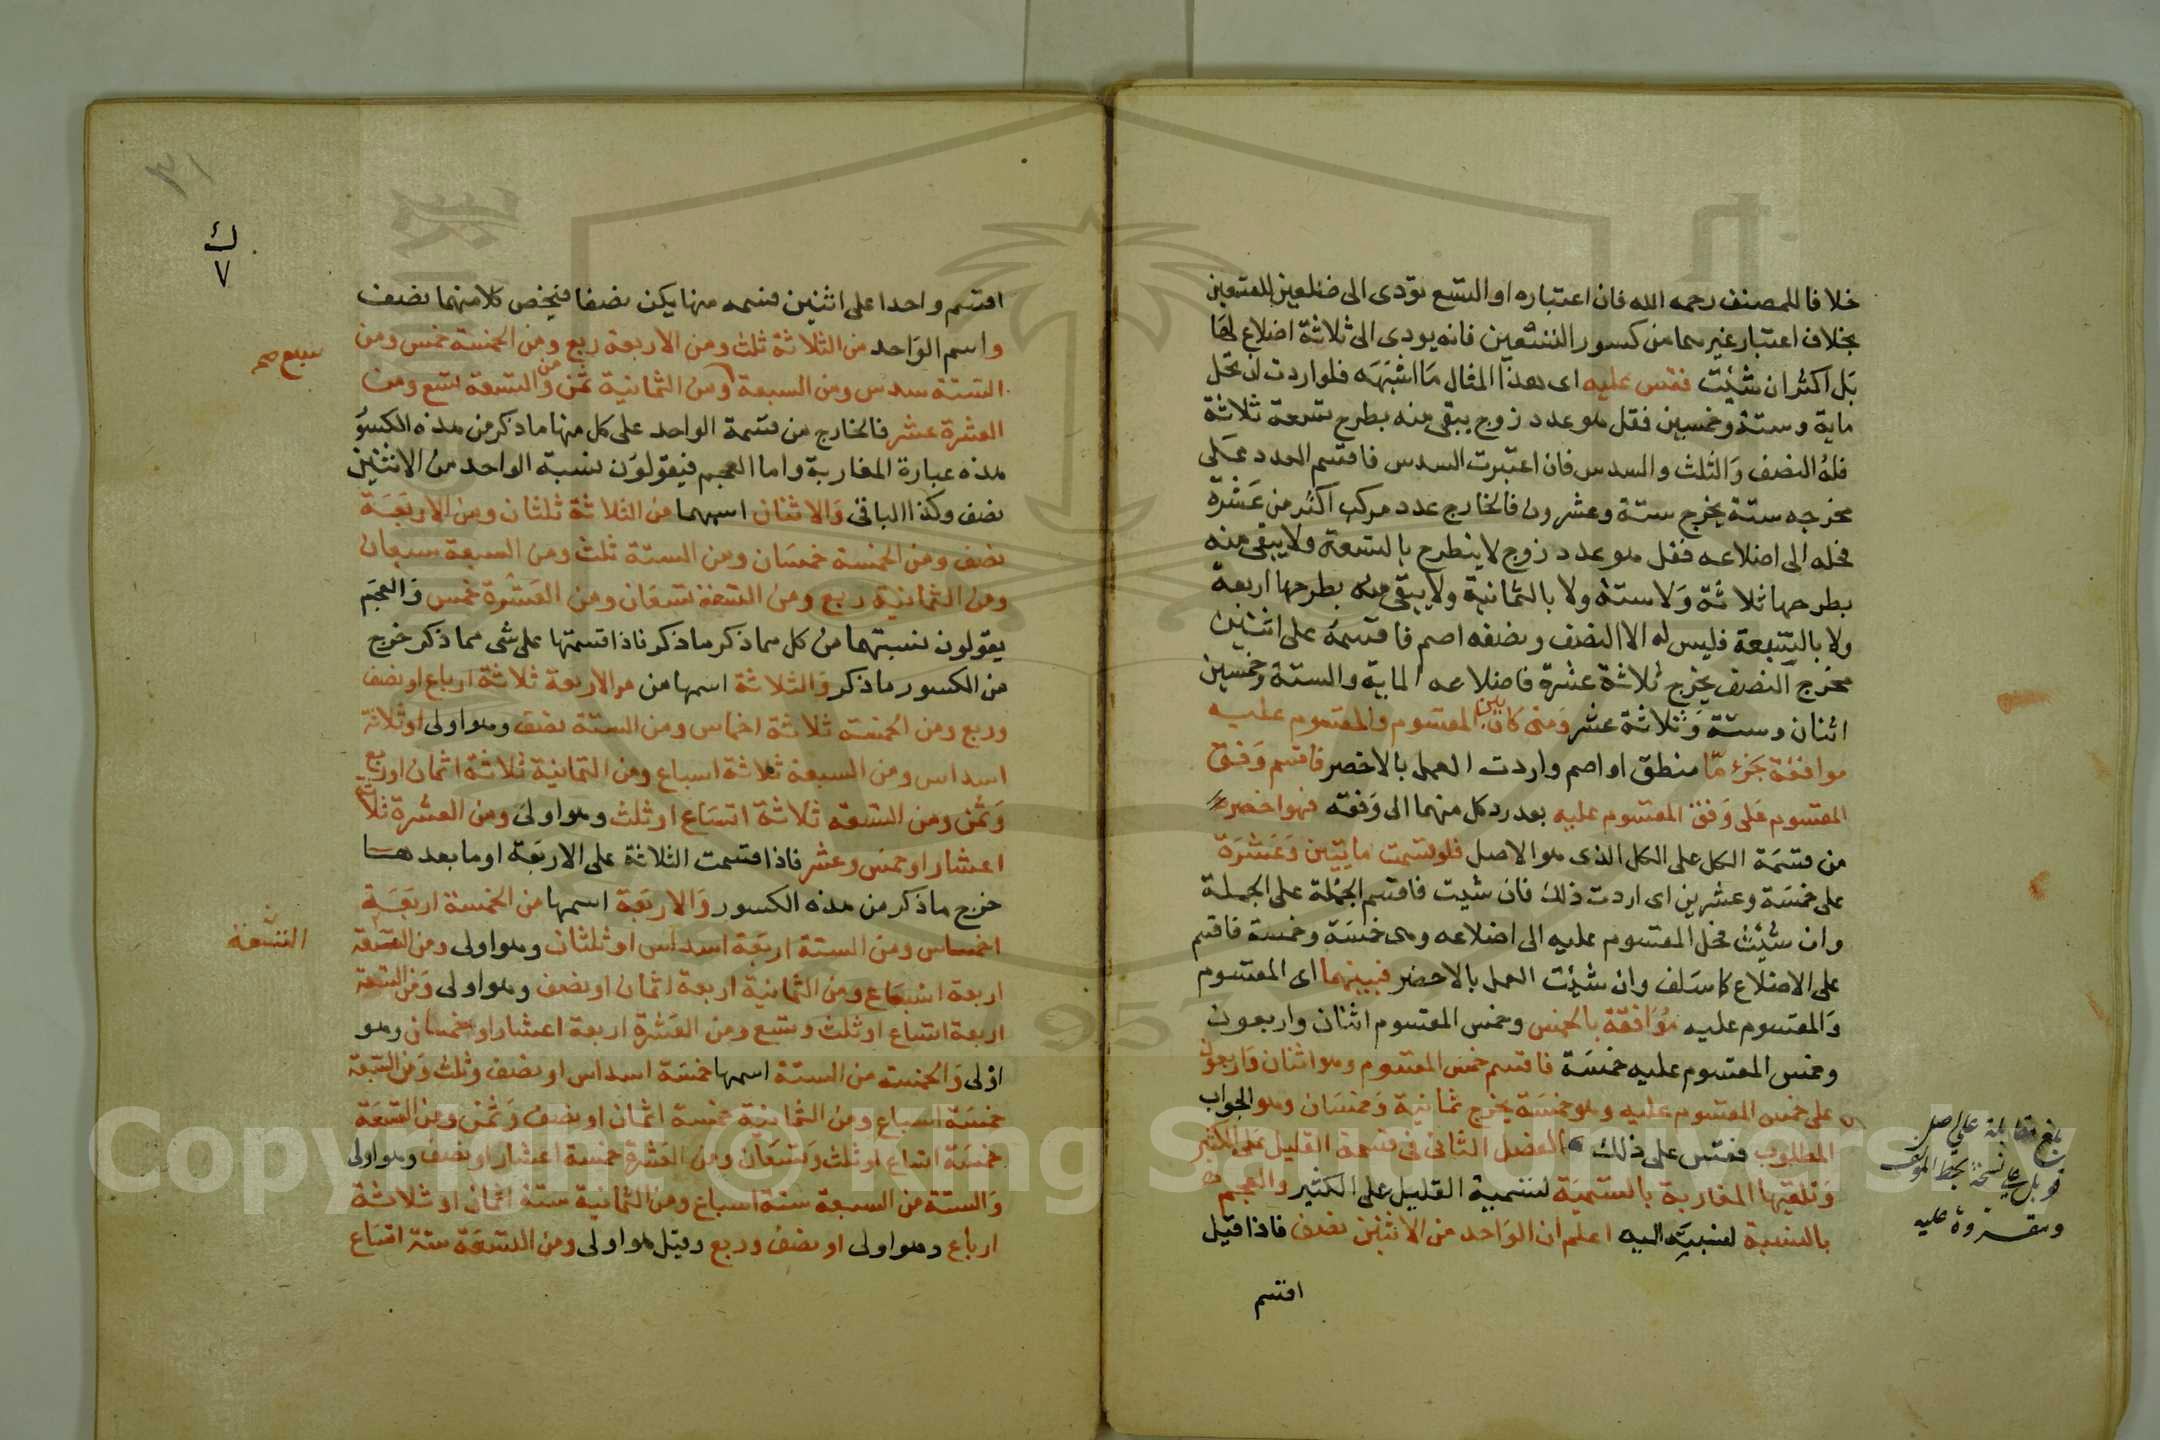 خلافا للمصنف رحمه الله فان اعتباره او التسع تودى الى ضلعين للتسعين
بخلاف اعتبار غيرهما من كسور التسعين فانه يودى الى ثلاثة اضلاع لها
بل اكثر ان شئت فقس عليه اى هذا المثال ما اشبهه فلو اردت ان تحل
ماية وستة وخمسين فقل هو عدد زوج يبقى منه بطرح تسعة ثلاثة
فله النصف والثلث والسدس فان اعتبرت السدس فاقسم العدد على
مخرجه ستة يخرج ستة وعشرون فالخارج عدد مركب اكثر من عشرة
فحله الى اضلاعه فقل هو عدد زوج لا ينطرح بالتسعة ولا يبقى منه
بطرحها ثلاثة ولا ستة ولا بالثمانية ولا يبقى منه بطرحها اربعة
ولا بالسبعة فليس له الا النصف ونصفه اصم فاقسمه على اثنين
مخرج النصف يخرج ثلاثة عشرة فاضلاعه الماية والستة وخمسين
اثنان وستة وثلاثة عشر ومتى كان بين المقسوم والمقسوم عليه
موافقة بجزء ما منطق او اصم واردت العمل بالاخصر فاقسم وفق
المقسوم على وفق المقسوم عليه بعد رد كل منهما الى وفقه فهو اخصر
من قسمة الكل على الكل الذى هو الاصل فلو قسمت مايتين وعشرة
على خمسة وعشرين اى اردت ذلك فان شيت فاقسم الجملة على الجملة
وان شئت فحل المقسوم عليه الى اضلاعه وهى خمسة وخمسة فاقسم
على الاضلاع كما سلف وان شئت العمل بالاخصر فبينهما اى المقسوم
والمقسوم عليه موافقة بالخمس وخمس المقسوم اثنان واربعون
وخمس المقسوم عليه خمسة فاقسم خمس المقسوم وهو اثنان واربعون
على خمس المقسوم عليه وهو خمسة يخرج ثمانية وخمسان وهو الجواب
المطلوب فقس على ذلك الفصل الثانى فى قسمة القليل على الكثير
وتلقيها المغاربة بالتسمية لتسمية القليل على الكثير والعجم
بالنسبة لنسبته اليه اعلم ان الواحد من الاثنين نصف فاذا قيل
اقسم
بلغ مقابلة على اصل
قوبل على نسخة بخط المولف
اقسم واحدا على اثنين فسمه منها يكن نصفا فيخص كلا منهما نصف
واسم الواحد من الثلاثة ثلث ومن الاربعة ربع ومن الخمسة خمس ومن
الستة سدس ومن السبعة ومن الثمانية ثمن ومن التسعة تسع ومن
سبع صح
العشرة عشر فالخارج من قسمة الواحد على كل منها ما ذكر من هذه الكسور
هذه عبارة المغاربة واما العجم فيقولون نسبة الواحد من الاثنين
نصف وكذا الباقى والاثنان اسمهما من الثلاثة ثلثان ومن الاربعة
نصف ومن الخمسة خمسان ومن الستة ثلث ومن السبعة سبعان
ومن الثمانية ربع ومن التسعة تسعان ومن العشرة خمس والعجم
يقولون نسبتهما من كل مما ذكر ما ذكر فاذا قسمتها على شى مما ذكر خرج
من الكسور ما ذكر والثلاثة اسمها من من الاربعة ثلاثة ارباع او نصف
وربع ومن الخمسة ثلاثة اخماس ومن الستة نصف وهو اولى او ثلاثة
اسداس ومن السبعة ثلاثة اسباع ومن الثمانية ثلاثة اثمان او ربع
وثمن ومن التسعة ثلاثة اتساع او ثلث وهو اولى ومن العشرة ثلاثة
اعشار او خمس وعشر فاذا قسمت الثلاثة على الاربعة او ما بعدها
خرج ما ذكر من هذه الكسور والاربعة اسمها من الخمسة اربعة
اخماس ومن الستة اربعة اسداس او ثلثان وهو اولى ومن السبعة
اربعة اسباع ومن الثمانية اربعة اثمان او نصف وهو اولى ومن التسعة
اربعة اتساع او ثلث وتسع ومن العشرة اربعة اعشار او خمسان وهو
اولى والخمسة من الستة اسمها خمسة اسداس او نصف وثلث ومن السبعة
خمسة اسباع ومن الثمانية خمسة اثمان او نصف وثمن ومن التسعة
خمسة اتساع او ثلث وتسعان ومن العشرة خمسة اعشار او نصف وهو اولى
والستة من السبعة ستة اسباع ومن الثمانية ستة اثمان او ثلاثة
ارباع وهو اولى او نصف وربع وقيل هو اولى ومن التسعة ستة اتساع
٣١
٧
Copyright © King Saud University
1957